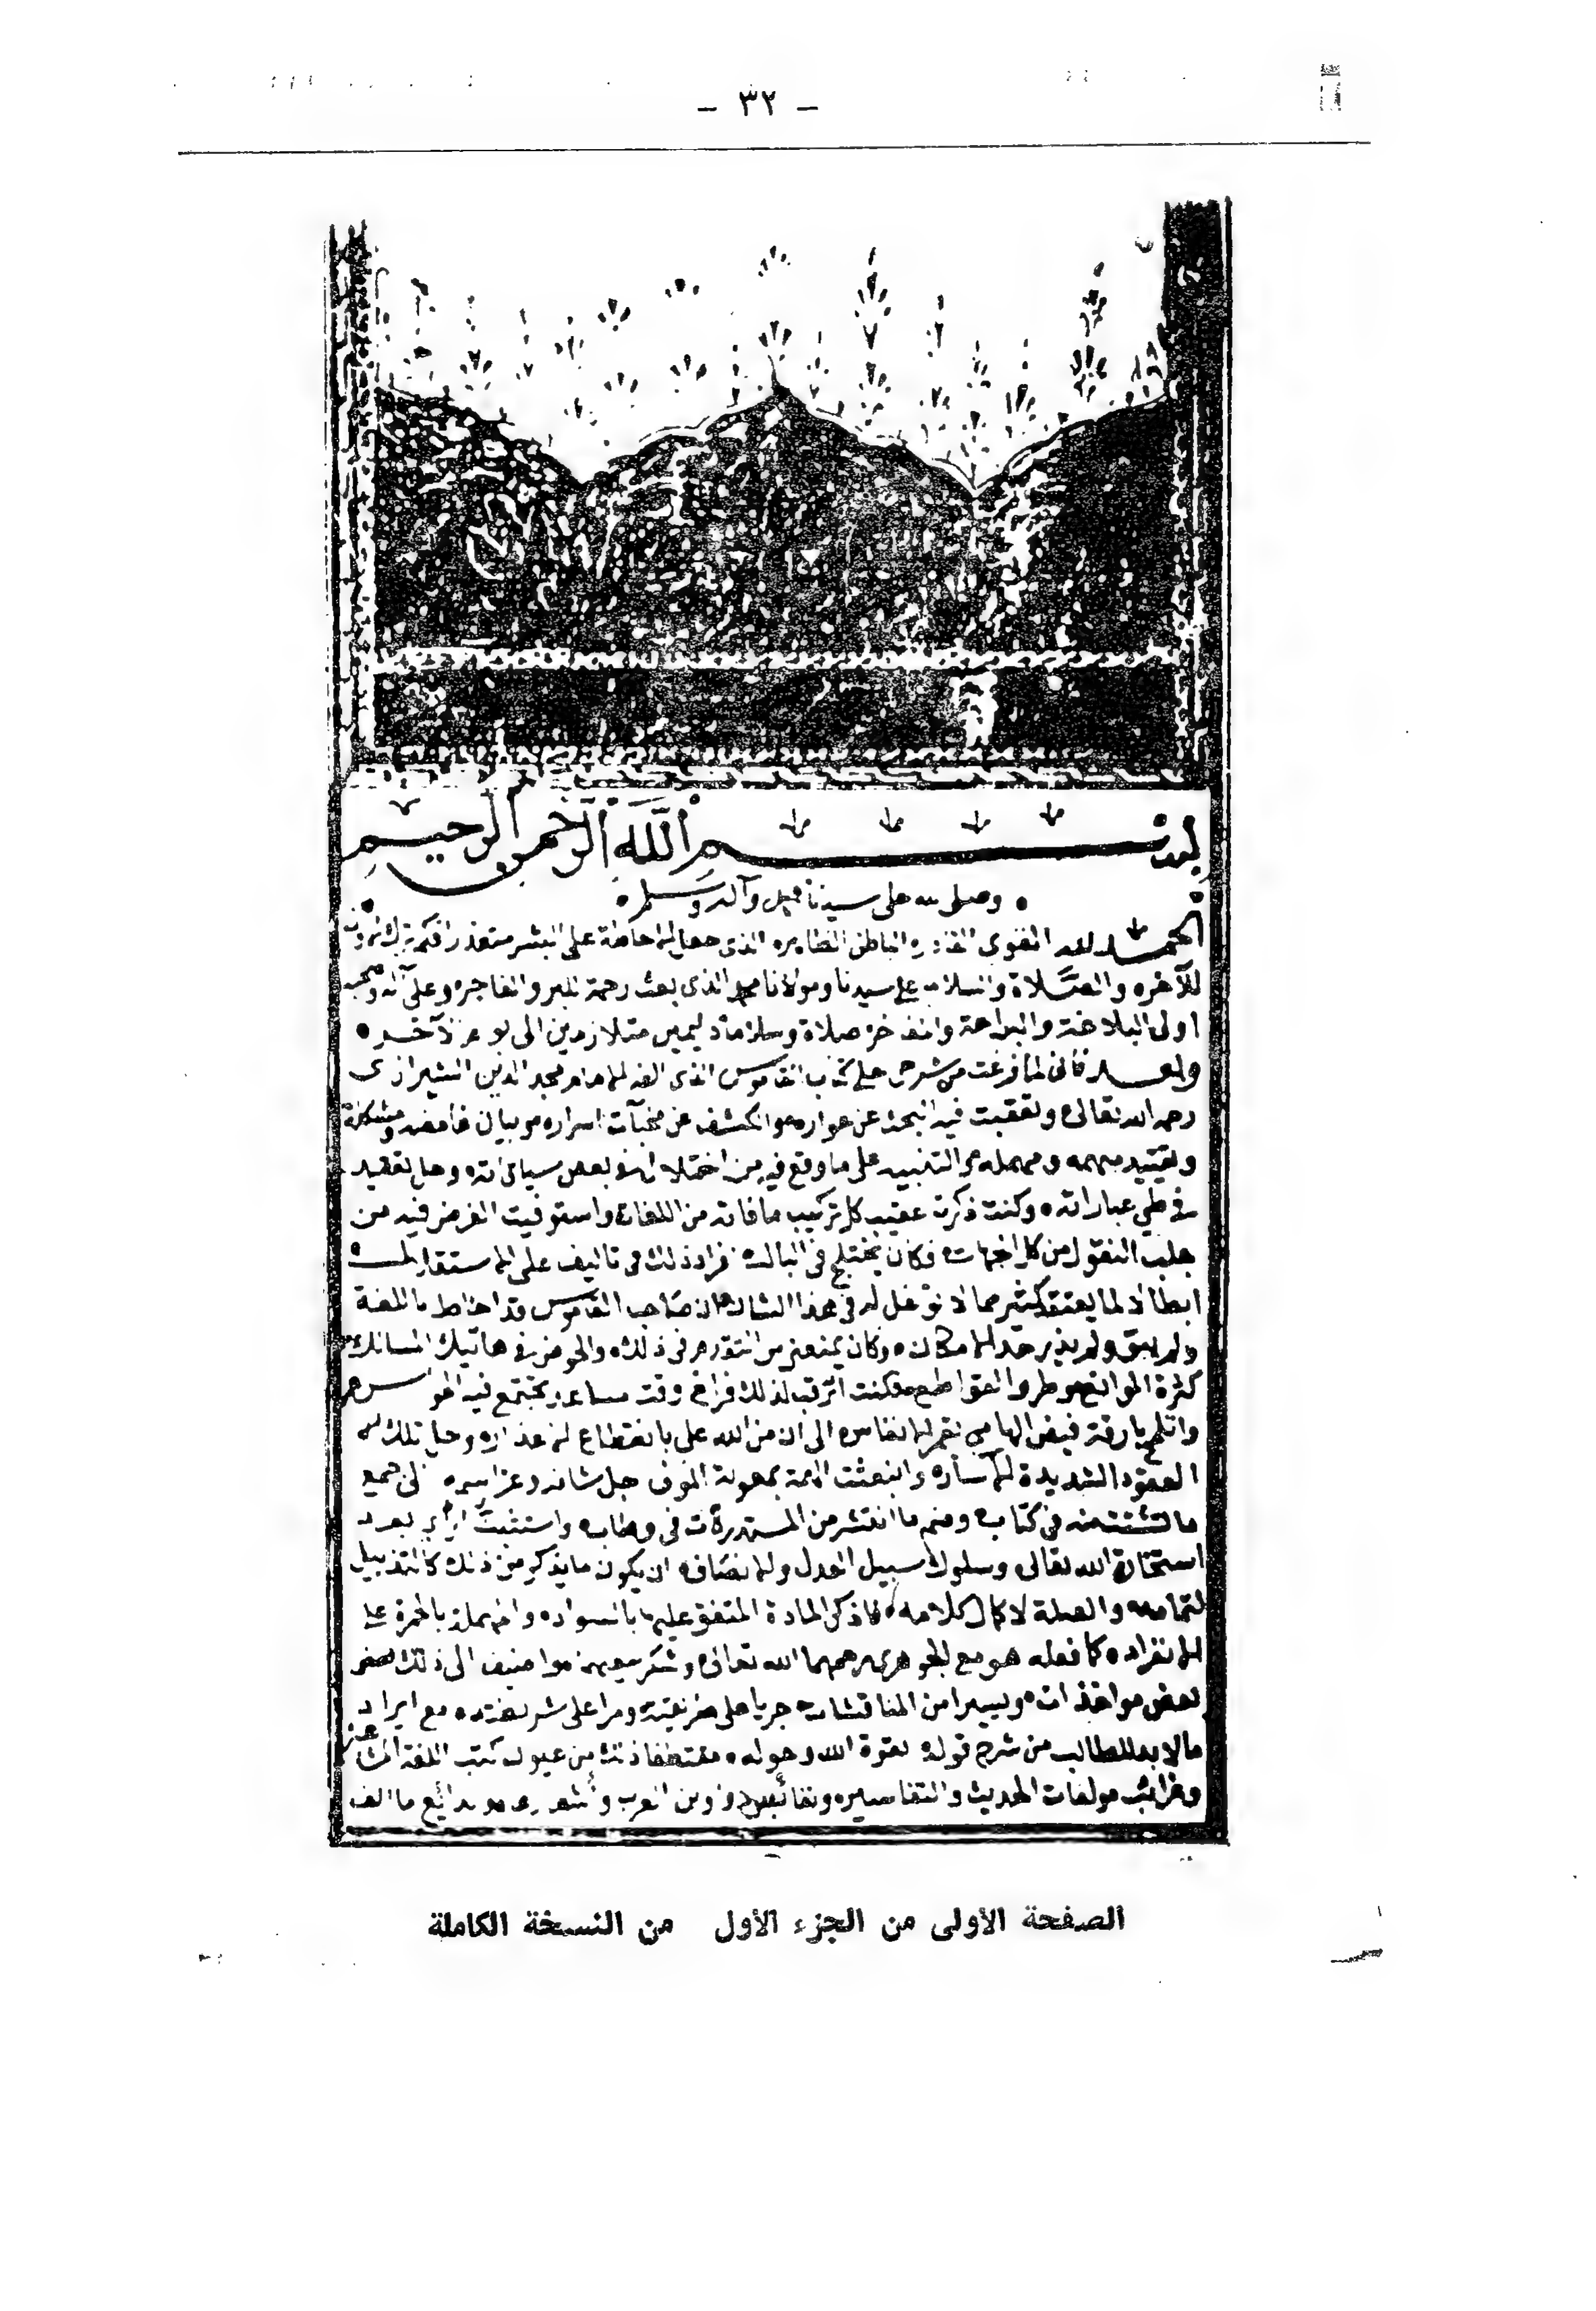 - ٣٢ -
بسم الله الرحمن الرحيم
وصلى الله على سيدنا محمد وآله وسلم
الحمد لله القوي القادر الباطن الظاهر الذي جعل الاحاطة على البشر متعذرا فكم ترك الاول
للآخر والصلاة والسلام على سيدنا ومولانا محمد الذي بعث رحمة للبر والفاجر وعلى آله وصحبه
اولى البلاغة والبراعة والمفاخر صلاة وسلاما دايمين متلازمين الى اليوم الآخر
وبعد فانى لما فرغت من شرحى على كتاب القاموس الذى الفه الامام مجد الدين الشيرازى
رحمه الله تعالى وتعقبت فيه البحث عن عواره والكشف عن مخبآت اسراره وبيان غامضه ومشكله
وتقييد مهمه ومهمله والتنبيه على ما وقع فيه من اختلاف في بعض سياقاته وحل تعقيد
في طي عباراته وكنت ذكرت عقيب كل تركيب ما فاته من اللغات واستوفيت الغرض فيه من
جلب النقول من كل الجهات فكان يختلج في البال افراد ذلك في تاليف على الاستقلال
ابطالا لما يعتقد كثير ممن لا توغل له في هذا الشان ان صاحب القاموس قد احاط باللغة
ولم يبق ولم يذر حد الامكان وكان يمنعني من التورد في ذلك والخوض في هاتيك المسالك
كثرة الموانع والقواطع وكنت اترقب لذلك فراغ وقت مساعد يجتمع فيه الحواس
الى ان من الله على بانقطاع وحل تلك
العقود الشديدة الآسار وانبعثت الهمة بمعونة المولى جل شانه وعز اسمه الى جمع
ما تشتت منه في كتاب وضم ما انتشر من المستدركات في وطاب واستثبت الراى بعد
استخارة الله تعالى وسلوك سبيل العدل والانصاف ان يكون ما يذكر من ذلك كالتذييل
لتمامه والصلة لاكمال كلامه فاذكر المادة المتفق عليها بالسواد وما اهمله بالحمرة على
الانفراد كما فعله هو مع الجوهرى رحمهما الله تعالى وشكر سعيهما واضيف الى ذلك بعض
بعض مواخذات ويسيرا من المناقشات جريا على طريقته ومرا على شريعته مع ايراد
ما لا بد للطالب من شرح قوله بقوة الله وحوله مقتطفا ذلك من عيون كتب اللغة
وغرائب مولفات الحديث والتفاسير العرب وبدائع ما الف
الصفحة الأولى من الجزء الأول من النسخة الكاملة